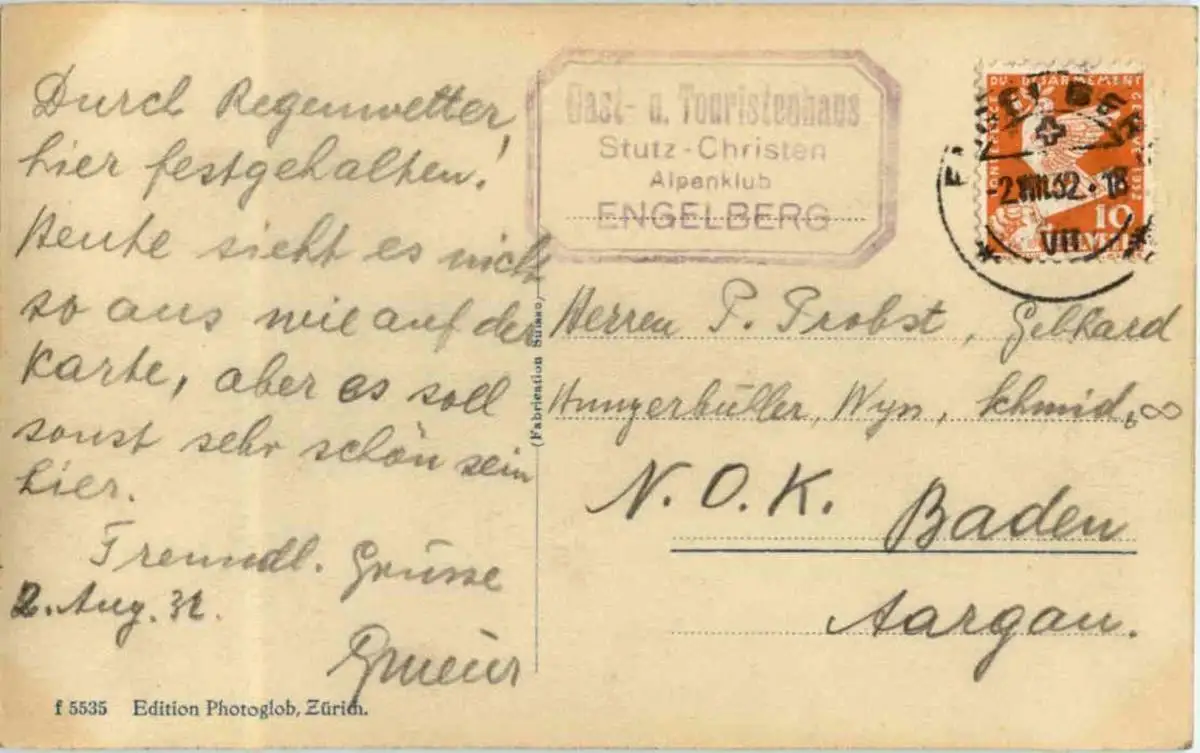 Durch Regenwetter
hier festgehalten!
Heute sieht es nicht
so aus wie auf der
Karte, aber es soll
sonst sehr schön sein
hier.
Freundl. Grüsse
2. Aug. 32.
f 5535 Edition Photoglob, Zürich.
(Fabrication Suisse)
Gast- u. Touristenhaus
Stutz-Christen
Alpenklub
ENGELBERG
DU DÉSARMEMENT
GENÈVE 1932
10
HELVETIA
-2.VIII.32.18
VII
Herren P. Probst, Gebhard
Hungerbüller, Wyn, Schmid, ∞
N.O.K. Baden
Aargau.